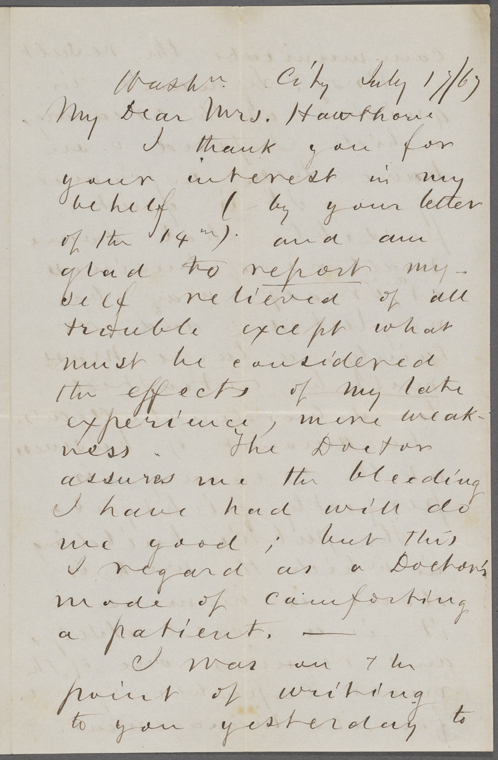 Washn City July 17/67
My Dear Mrs. Hawthorne
I thank you for
your interest in my
behalf (by your letter
of the 14th). and am
glad to report my-
self relieved of all
trouble except what
must be considered
the effects of my late
experience, mere weak-
ness. The Doctor
assures me the bleeding
I have had will do
me good; but this
I regard as a Doctor's
mode of comforting
a patient. —
I was on the
point of writing
to you yesterday to